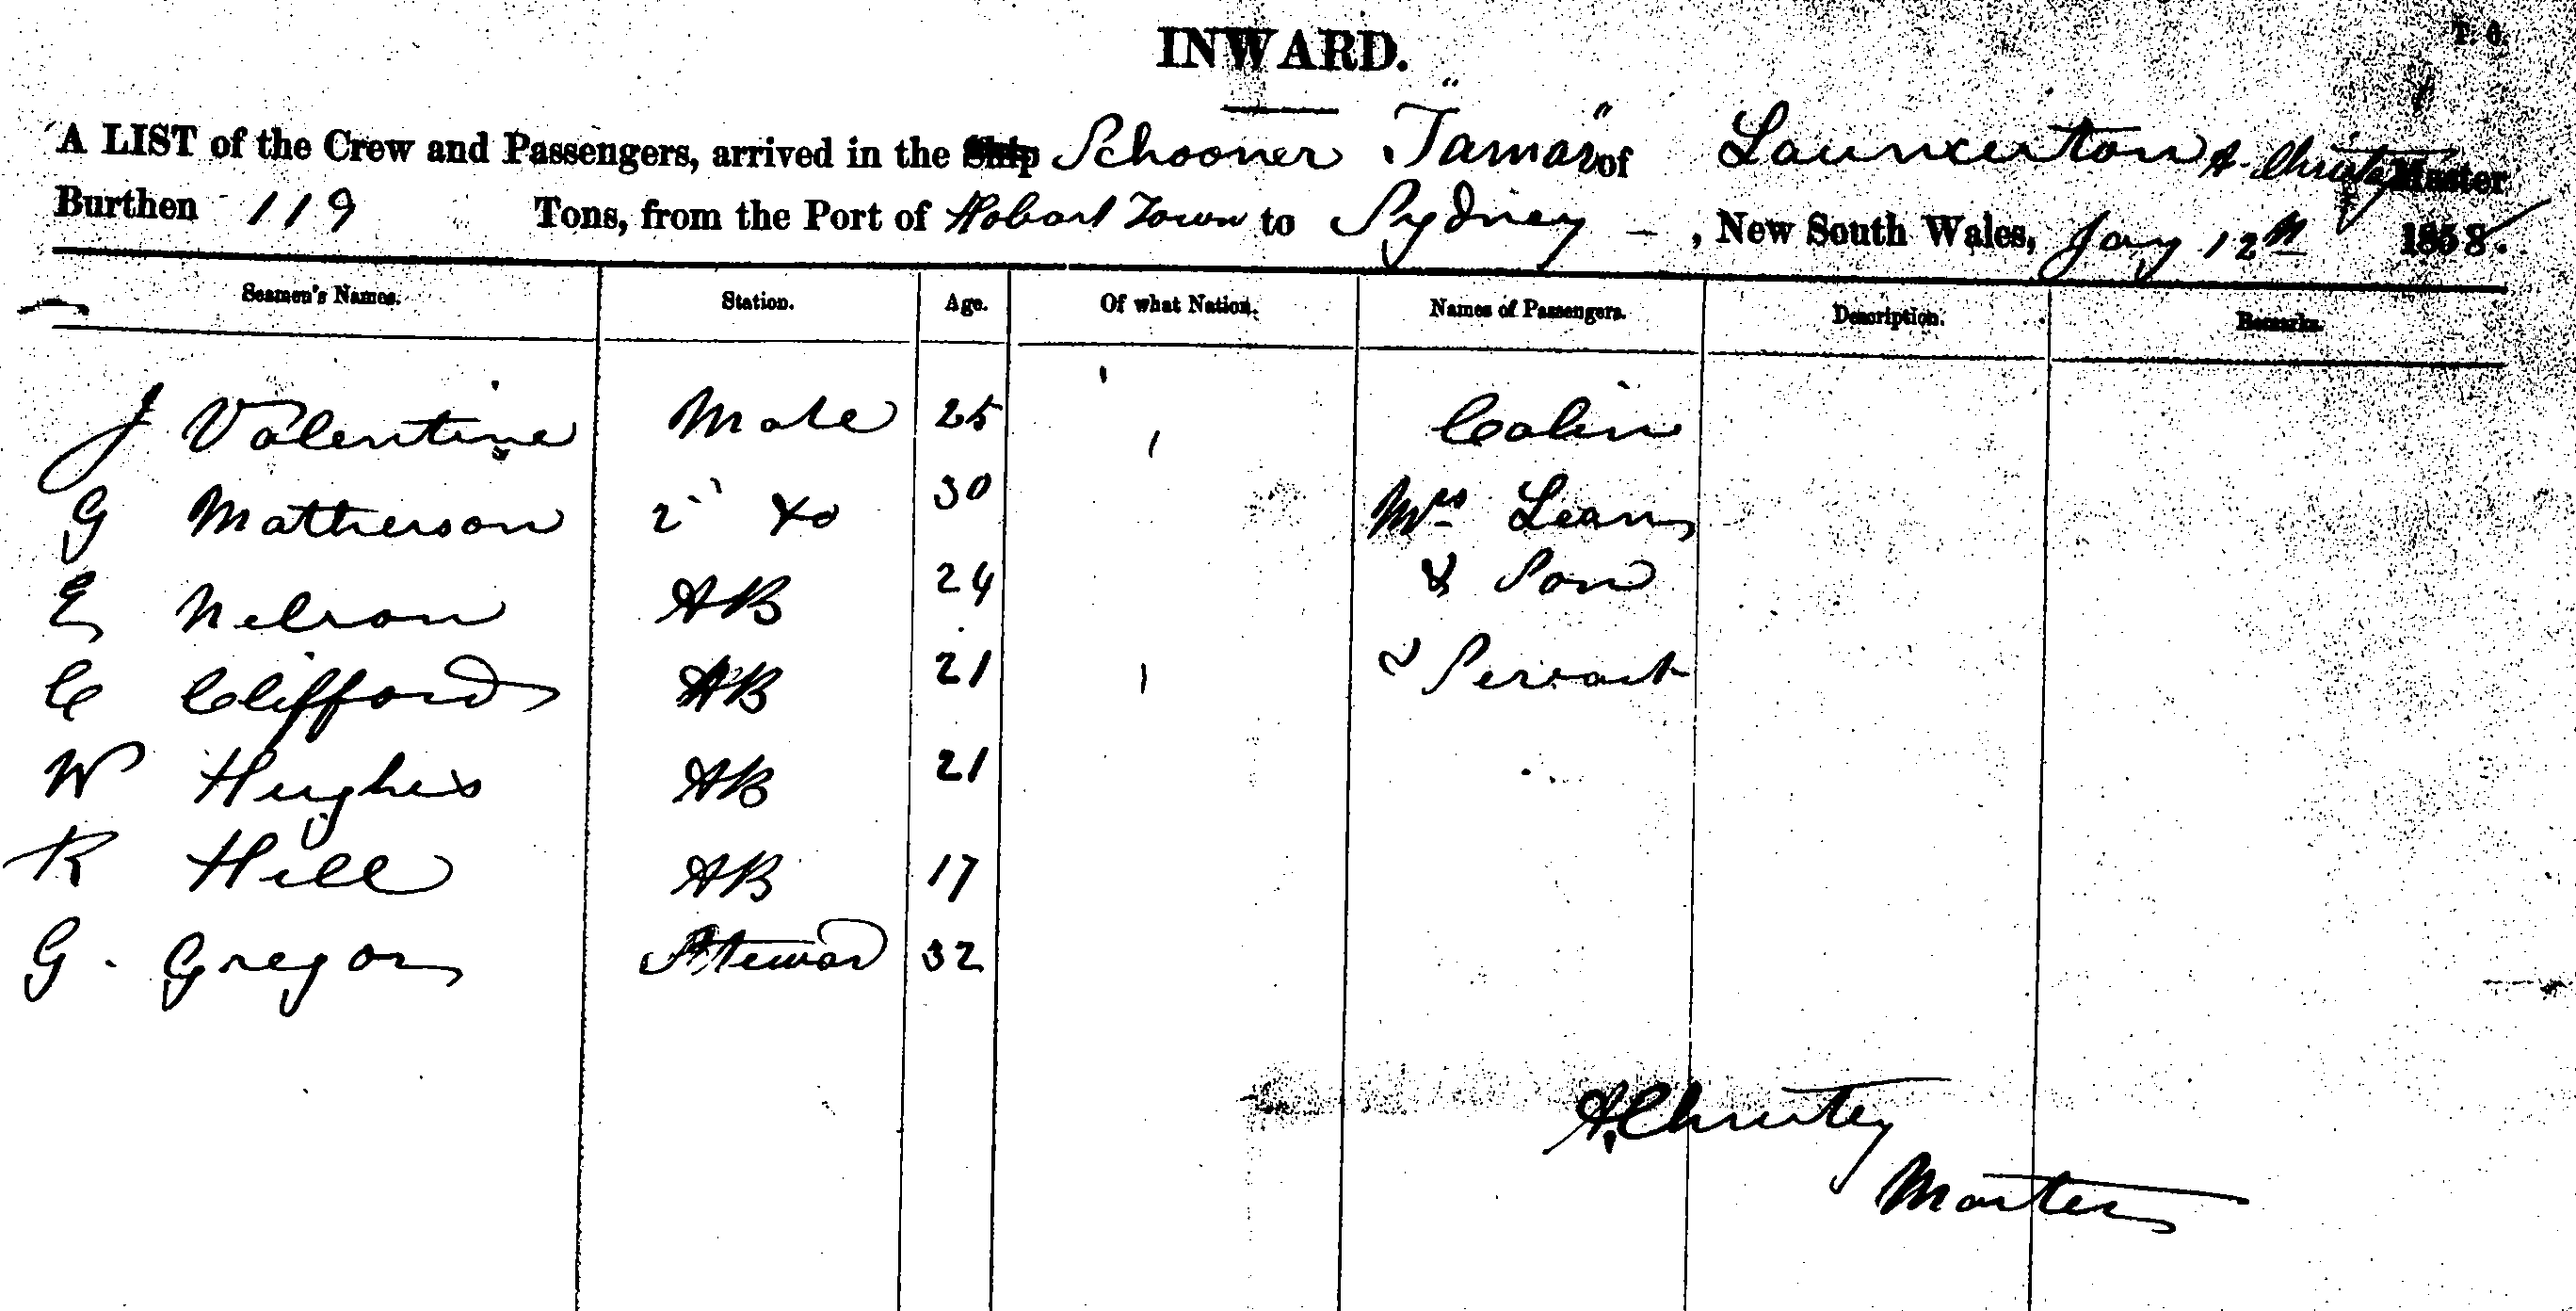 INWARD.
A LIST of the Crew and Passengers, arrived in the Ship Schooner "Tamar" of Launceston A. Christey Master
Burthen 119 Tons, from the Port of Hobart Town to Sydney - , New South Wales, Jay 12th 1858.
Seamen's Names. Station. Age. Of what Nation. Names of Passengers. Description. Remarks.
J Valentine Mate 25 Cabin
G Matherson 2" do 30 Mrs Leam
E Nelson AB 24 & Son
C Clifford AB 21 & Servant
W Hughes AB 21
R Hill AB 17
G. Gregor Steward 32
A. Christey
Master